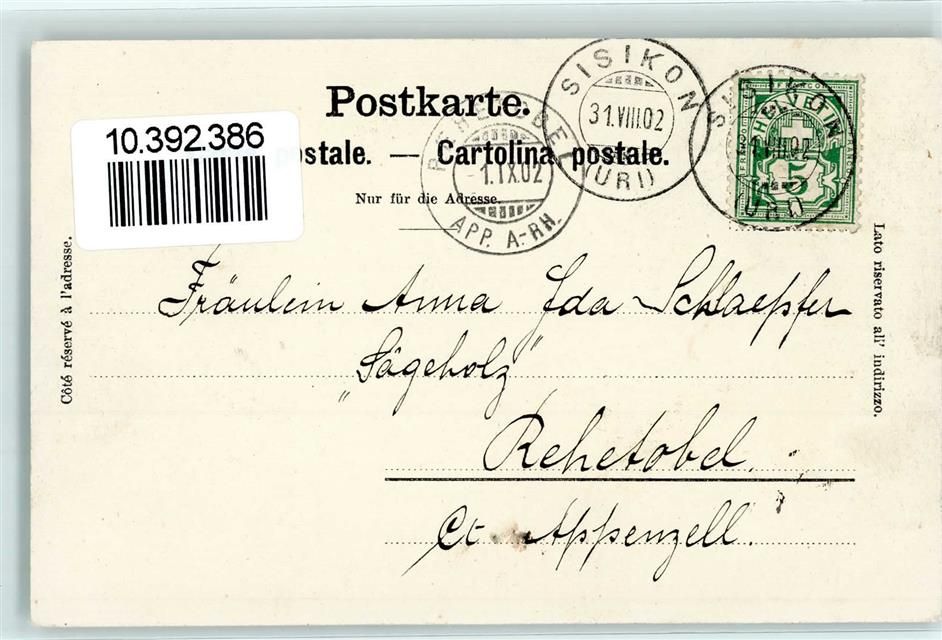 Postkarte.
10.392.386
postale. — Cartolina postale.
Nur für die Adresse.
SISIKON
31.VIII.02
(URI)
REHETOBEL
1.IX.02
APP. A.-RH.
SISIKON
HELVETIA
5
Côté réservé à l'adresse.
Lato riservato all' indirizzo.
Fräulein Anna Ida Schlaepfer
„Sägeholz"
Rehetobel.
Ct. Appenzell.